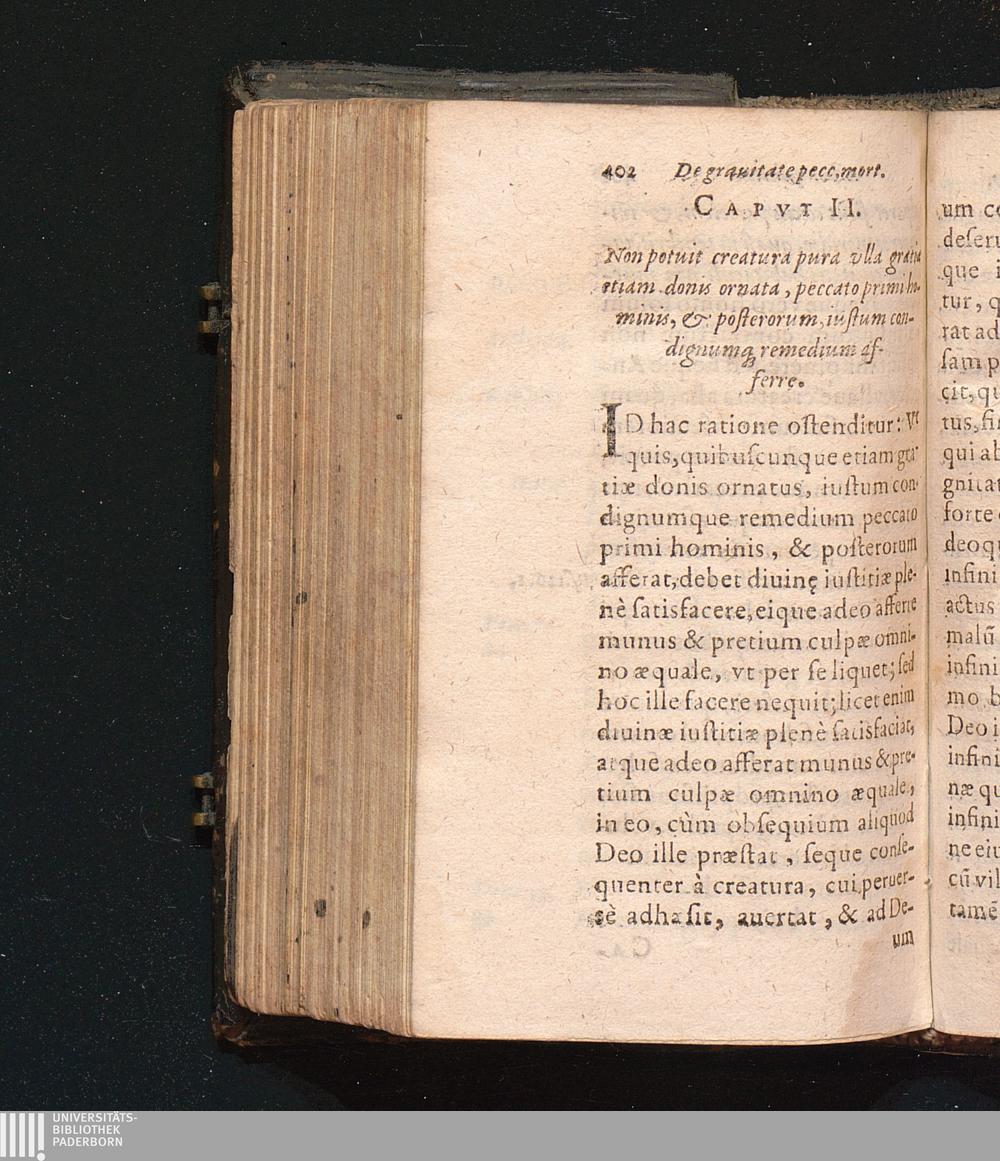 402 De grauitate pecc. mort.
CAPVT II.
Non potuit creatura pura vlla gratiæ
etiam donis ornata, peccato primi ho-
minis, & posterorum, iustum con-
dignumq́; remedium af-
ferre.
ID hac ratione ostenditur: Vt
quis, quibuscunque etiam gra-
tiæ donis ornatus, iustum con-
dignumque remedium peccato
primi hominis, & posterorum
afferat, debet diuinę iustitiæ ple-
nè satisfacere, eique adeo afferre
munus & pretium culpæ omni-
no æquale, vt per se liquet; sed
hoc ille facere nequit; licet enim
diuinæ iustitiæ plenè satisfaciat,
atque adeo afferat munus & pre-
tium culpæ omnino æquale,
in eo, cùm obsequium aliquod
Deo ille præstat, seque conse-
quenter à creatura, cui peruer-
sè adhæsit, auertat, & ad De-
um
um co
deseru
que i
tur, q
rat ad
sam p
cit, qu
tus, fin
qui ab
gnitat
forte
deoqu
infini
actus
malū
infini
mo b
Deo i
infini
næ qu
infini
ne eiu
cū vil
tamē
UNIVERSITÄTS-
BIBLIOTHEK
PADERBORN